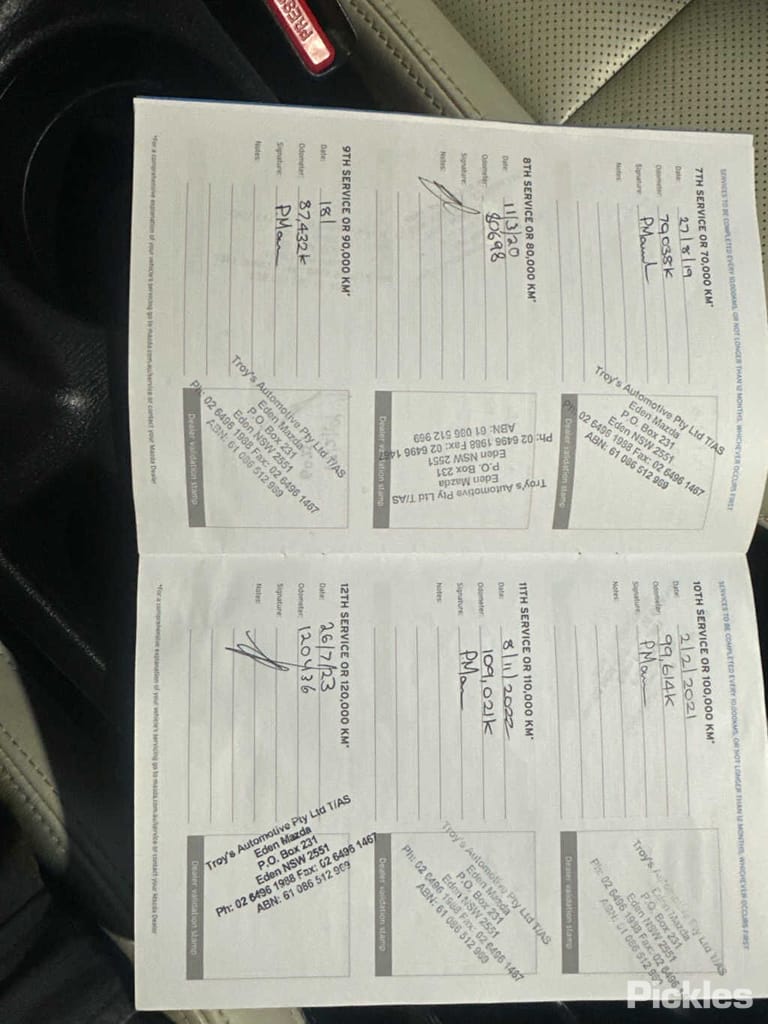 PRESS
SERVICES TO BE COMPLETED EVERY 10,000KMS, OR NOT LONGER THAN 12 MONTHS, WHICHEVER OCCURS FIRST
7TH SERVICE OR 70,000 KM*
Date: 27/8/19
Odometer: 79038K
Signature:
Notes:
Troy's Automotive Pty Ltd T/AS
Eden Mazda
P.O. Box 231
Eden NSW 2551
Ph: 02 6496 1988 Fax: 02 6496 1467
ABN: 61 086 512 969
Dealer validation stamp
8TH SERVICE OR 80,000 KM*
Date: 11/3/20
Odometer: 80698
Signature:
Notes:
Troy's Automotive Pty Ltd T/AS
Eden Mazda
P.O. Box 231
Eden NSW 2551
Ph: 02 6496 1988 Fax: 02 6496 1467
ABN: 61 086 512 969
Dealer validation stamp
9TH SERVICE OR 90,000 KM*
Date: 18/
Odometer: 87,432K
Signature: P.Man
Notes:
Troy's Automotive Pty Ltd T/AS
Eden Mazda
P.O. Box 231
Eden NSW 2551
Ph: 02 6496 1988 Fax: 02 6496 1467
ABN: 61 086 512 969
Dealer validation stamp
*For a comprehensive explanation of your vehicle's servicing go to mazda.com.au/service or contact your Mazda Dealer
SERVICES TO BE COMPLETED EVERY 10,000KMS, OR NOT LONGER THAN 12 MONTHS, WHICHEVER OCCURS FIRST
10TH SERVICE OR 100,000 KM*
Date: 2/2/2021
Odometer: 99,614K
Signature: P.Man
Notes:
Troy's Automotive Pty Ltd T/AS
Eden Mazda
P.O. Box 231
Eden NSW 2551
Ph: 02 6496 1988 Fax: 02 6496
ABN: 61 086 512 969
Dealer validation stamp
11TH SERVICE OR 110,000 KM*
Date: 8/11/2022
Odometer: 109,021K
Signature: P.Man
Notes:
Troy's Automotive Pty Ltd T/AS
Eden Mazda
P.O. Box 231
Eden NSW 2551
Ph: 02 6496 1988 Fax: 02 6496 1467
ABN: 61 086 512 969
Dealer validation stamp
12TH SERVICE OR 120,000 KM*
Date: 26/7/23
Odometer: 120436
Signature:
Notes:
Troy's Automotive Pty Ltd T/AS
Eden Mazda
P.O. Box 231
Eden NSW 2551
Ph: 02 6496 1988 Fax: 02 6496 1467
ABN: 61 086 512 969
Dealer validation stamp
*For a comprehensive explanation of your vehicle's servicing go to mazda.com.au/service or contact your Mazda Dealer
Pickles